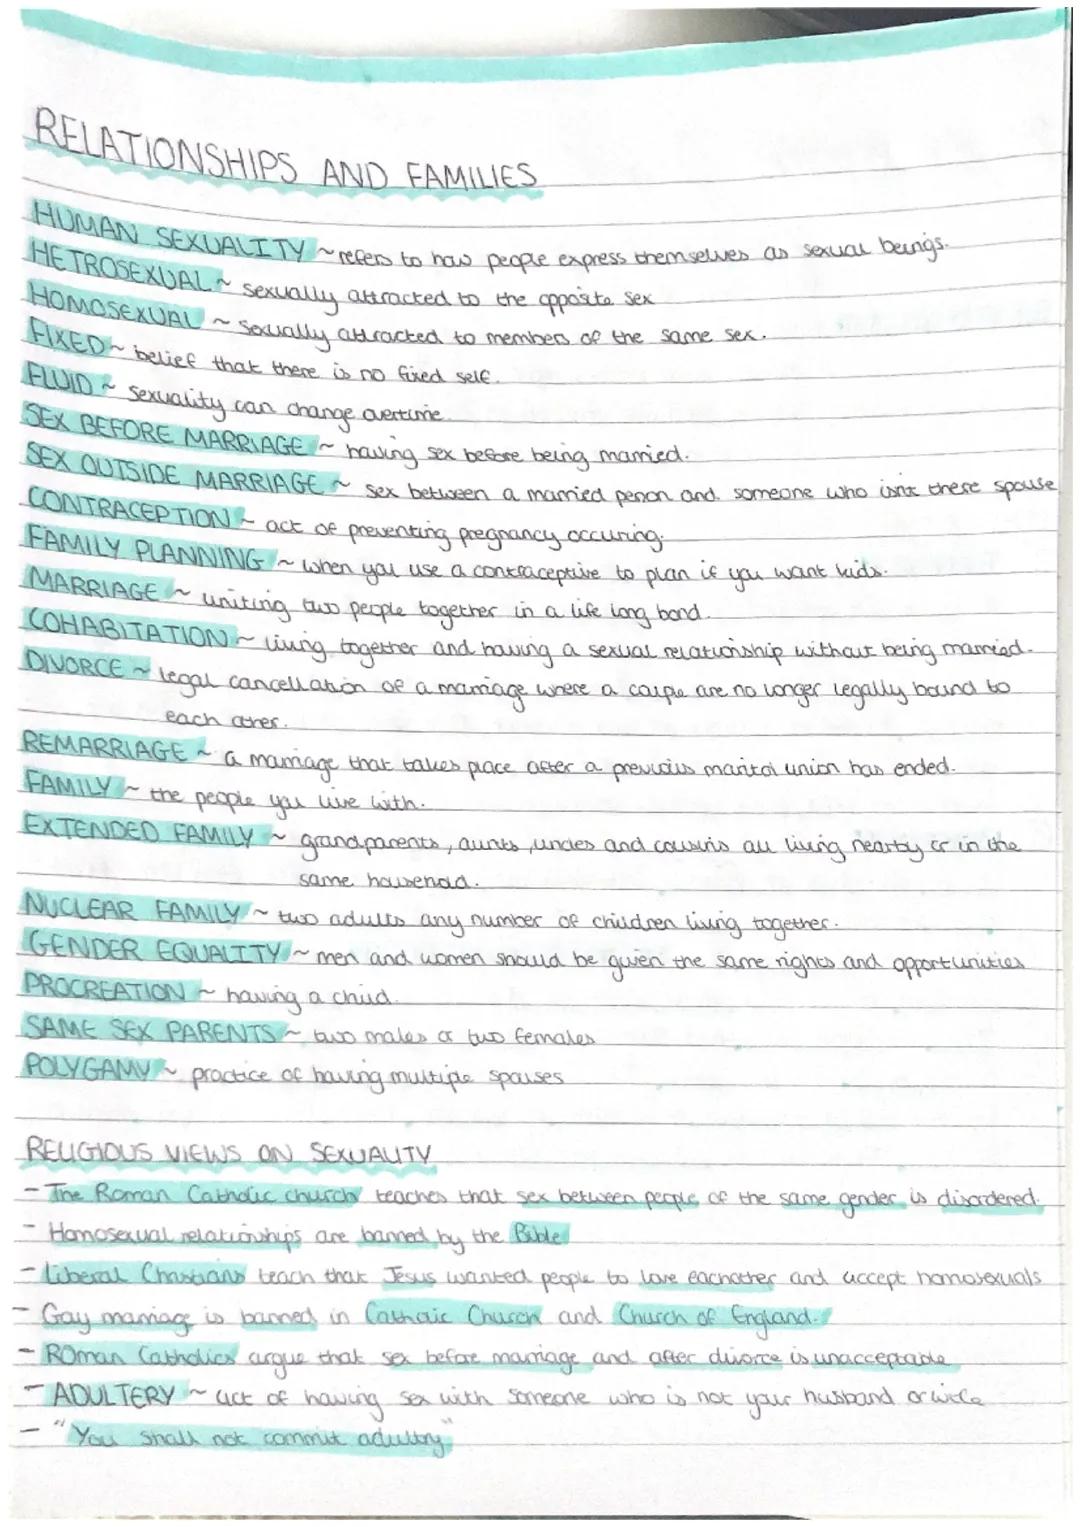 RELATIONSHIPS AND FAMILIES
HUMAN SEXUALITY ~ refers to how people express themselves as sexual beings.
HETROSEXUAL ~ sexually attracted to the opposite sex
HOMOSEXUAL ~ sexually attracted to members of the same sex.
FIXED ~ belief that there is no fixed self.
FLUID ~ sexuality can change overtime.
SEX BEFORE MARRIAGE ~ having sex before being married.
SEX OUTSIDE MARRIAGE ~ sex between a married person and someone who isnt there spouse
CONTRACEPTION ~ act of preventing pregnancy occuring.
FAMILY PLANNING ~ when you use a contraceptive to plan if you want kids.
MARRIAGE ~ uniting two people together in a life long bond.
COHABITATION ~ living together and having a sexual relationship without being married.
DIVORCE ~ legal cancellation of a marriage where a couple are no longer legally bound to
each other.
REMARRIAGE ~ a marriage that takes place after a previous marital union has ended.
FAMILY ~ the people you live with.
EXTENDED FAMILY ~ grandparents, aunts, uncles and cousins all living nearby or in the
same household.
NUCLEAR FAMILY ~ two adults any number of children living together.
GENDER EQUALITY ~ men and women should be given the same rights and opportunities
PROCREATION ~ having a child.
SAME SEX PARENTS ~ two males or two females
POLYGAMY ~ practice of having multiple spouses
RELIGIOUS VIEWS ON SEXUALITY
- The Roman Catholic church teaches that sex between people of the same gender is disordered.
- Homosexual relationships are banned by the Bible
- Liberal Christians teach that Jesus wanted people to love eachother and accept homosexuals
- Gay marriage is banned in Catholic Church and Church of England.
- ROman Catholics argue that sex before marriage and after divorce is unacceptable
- ADULTERY ~ act of having sex with someone who is not your husband or wife
- "You shall not commit adultry"